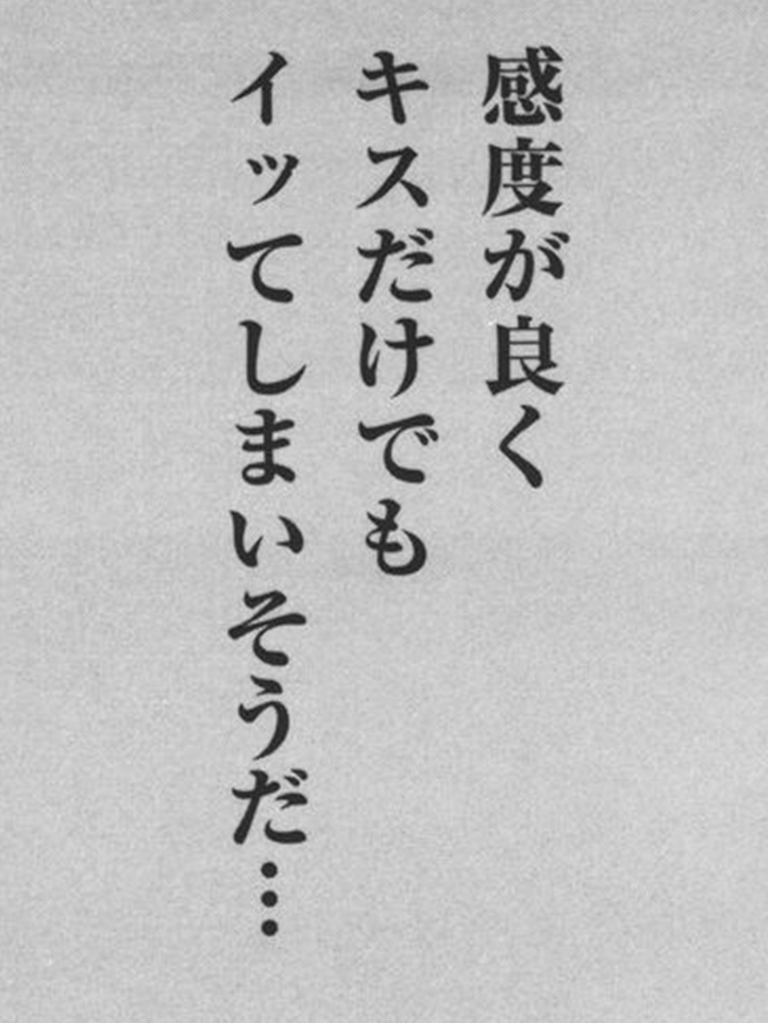 感度が良く
キスだけでも
イッてしまいそうだ…